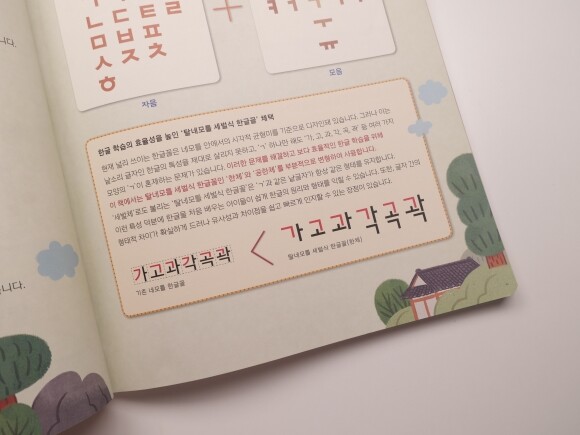 니다.
ㄴ ㄷ ㅌ ㄹ
ㅁ ㅂ ㅍ
ㅅ ㅈ ㅊ
ㅎ
+
ㅜ
ㅠ
자음
모음
한글 학습의 효율성을 높인 '탈네모틀 세벌식 한글꼴' 채택
현재 널리 쓰이는 한글꼴은 네모틀 안에서의 시각적 균형미를 기준으로 디자인돼 있습니다. 그러나 이는
낱소리 글자인 한글의 특성을 제대로 살리지 못하고, 'ㄱ' 하나만 해도 '가, 고, 과, 각, 곡, 곽' 등 여러 가지
모양의 'ㄱ'이 혼재하는 문제가 있습니다. 이러한 문제를 해결하고 보다 효율적인 한글 학습을 위해
이 책에서는 탈네모틀 세벌식 한글꼴인 '한체'와 '공한체'를 부분적으로 변형하여 사용합니다.
'세벌체'로도 불리는 '탈네모틀 세벌식 한글꼴'은 'ㄱ'과 같은 낱글자가 항상 같은 형태를 유지합니다.
이런 특성 덕분에 한글을 처음 배우는 아이들이 쉽게 한글의 원리와 형태를 익힐 수 있습니다. 또한, 글자 간의
형태적 차이가 확실하게 드러나 유사성과 차이점을 쉽고 빠르게 인지할 수 있는 장점이 있습니다.
가고과각곡곽 < 가고과각곡곽
기존 네모틀 한글꼴
탈네모틀 세벌식 한글꼴(한체)
니다.